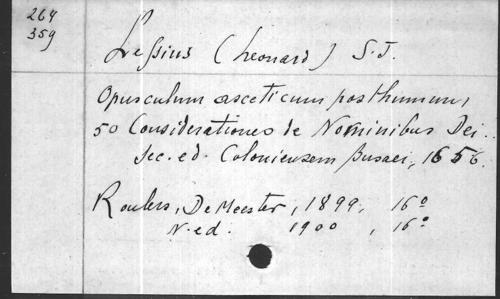 264
359
Lessius (Leonard) S.J.
Opusculum asceticum posthumum,
50 Considerationes de Nominibus Dei.
sec. ed. Coloniensem Busaei, 1656.
Roulers, De Meester, 1899, 16°
N. ed. 1900, 16°